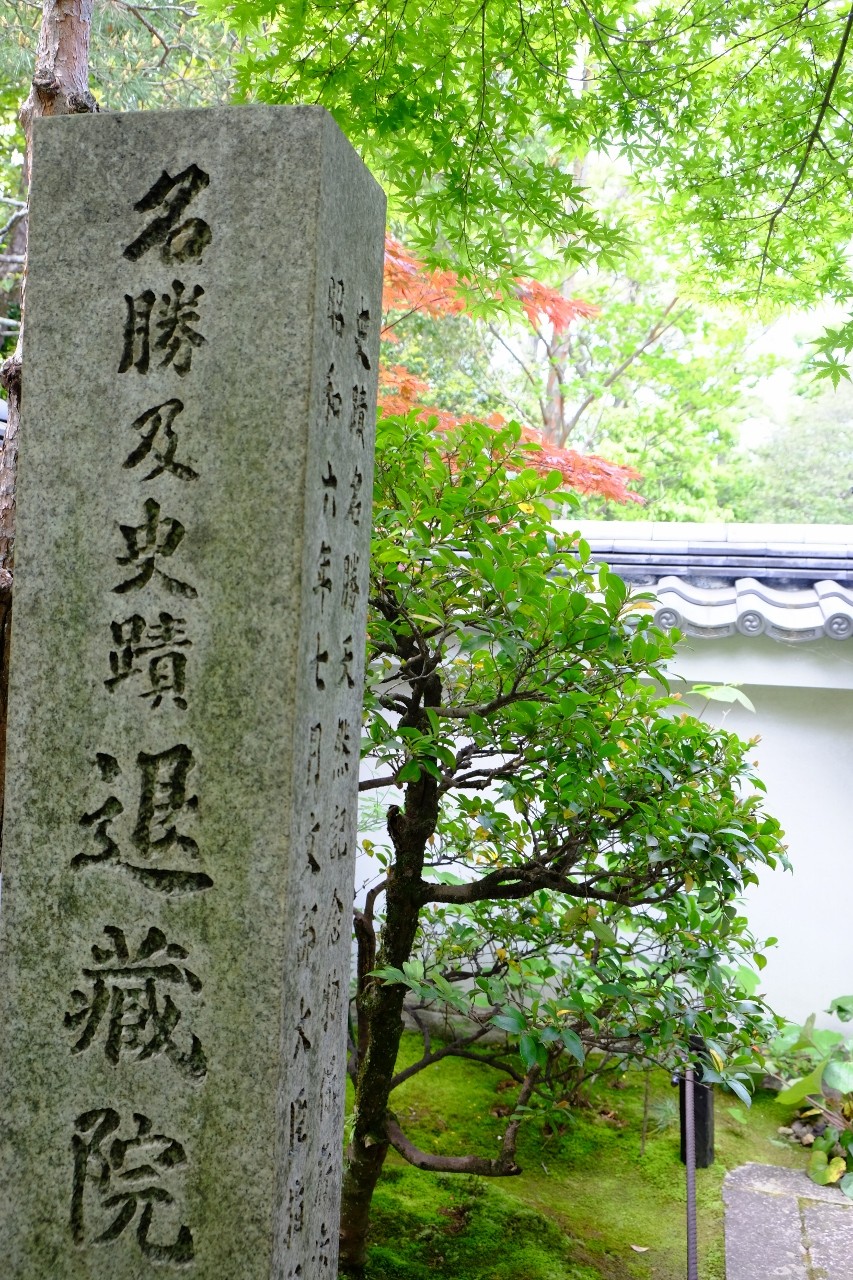 名勝及史蹟退藏院
史蹟名勝天然記念物保存
昭和六年七月文部大臣指定